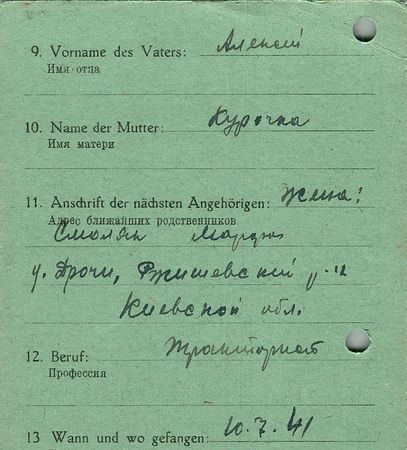 9. Vorname des Vaters: Алексей
Имя отца
10. Name der Mutter: Курочка
Имя матери
11. Anschrift der nächsten Angehörigen: Жена:
Адрес ближайших родственников
Смоляк
Ржищевский
Киевской обл.
12. Beruf: Тракторист
Профессия
13 Wann und wo gefangen: 10.7.41